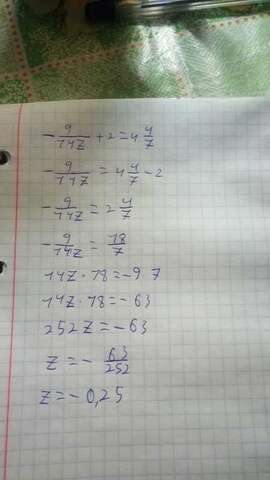 -9/14z + 2 = 4 4/7
-9/14z = 4 4/7 - 2
-9/14z = 2 4/7
-9/14z = 18/7
14z · 18 = -9 7
14z · 18 = -63
252z = -63
z = -63/252
z = -0,25